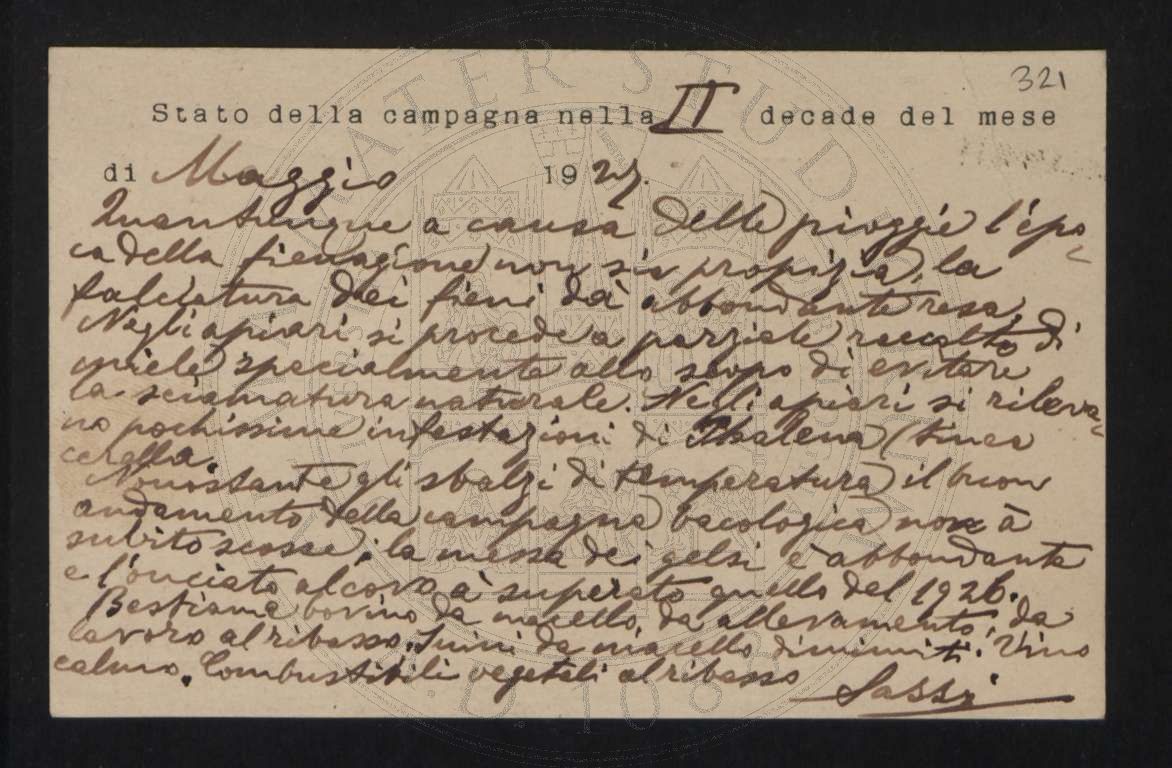 321
Stato della campagna nella II decade del mese
di Maggio 1927.
Quantunque a causa delle pioggie l'épo-
ca della fienagione non sia propizia, la
falciatura dei fieni dà abbondante resa.
Negli apiari si procede a parziale raccolto di
miele specialmente allo scopo di evitare
la sciamatura naturale. Nelli apiari si rileva-
no pochissime infestazioni di Phalena (tinea
cerella.
Nonostante gli sbalzi di temperatura il buon
andamento della campagna bacologica non à
subito scosse; la messa dei gelsi è abbondante
e l'onciato al covo à superato quello del 1926.
Bestiame bovino da macello, da allevamento, da
lavoro al ribasso. Suini da macello diminuiti. Vino
calmo. Combustibili vegetali al ribasso
Sassi